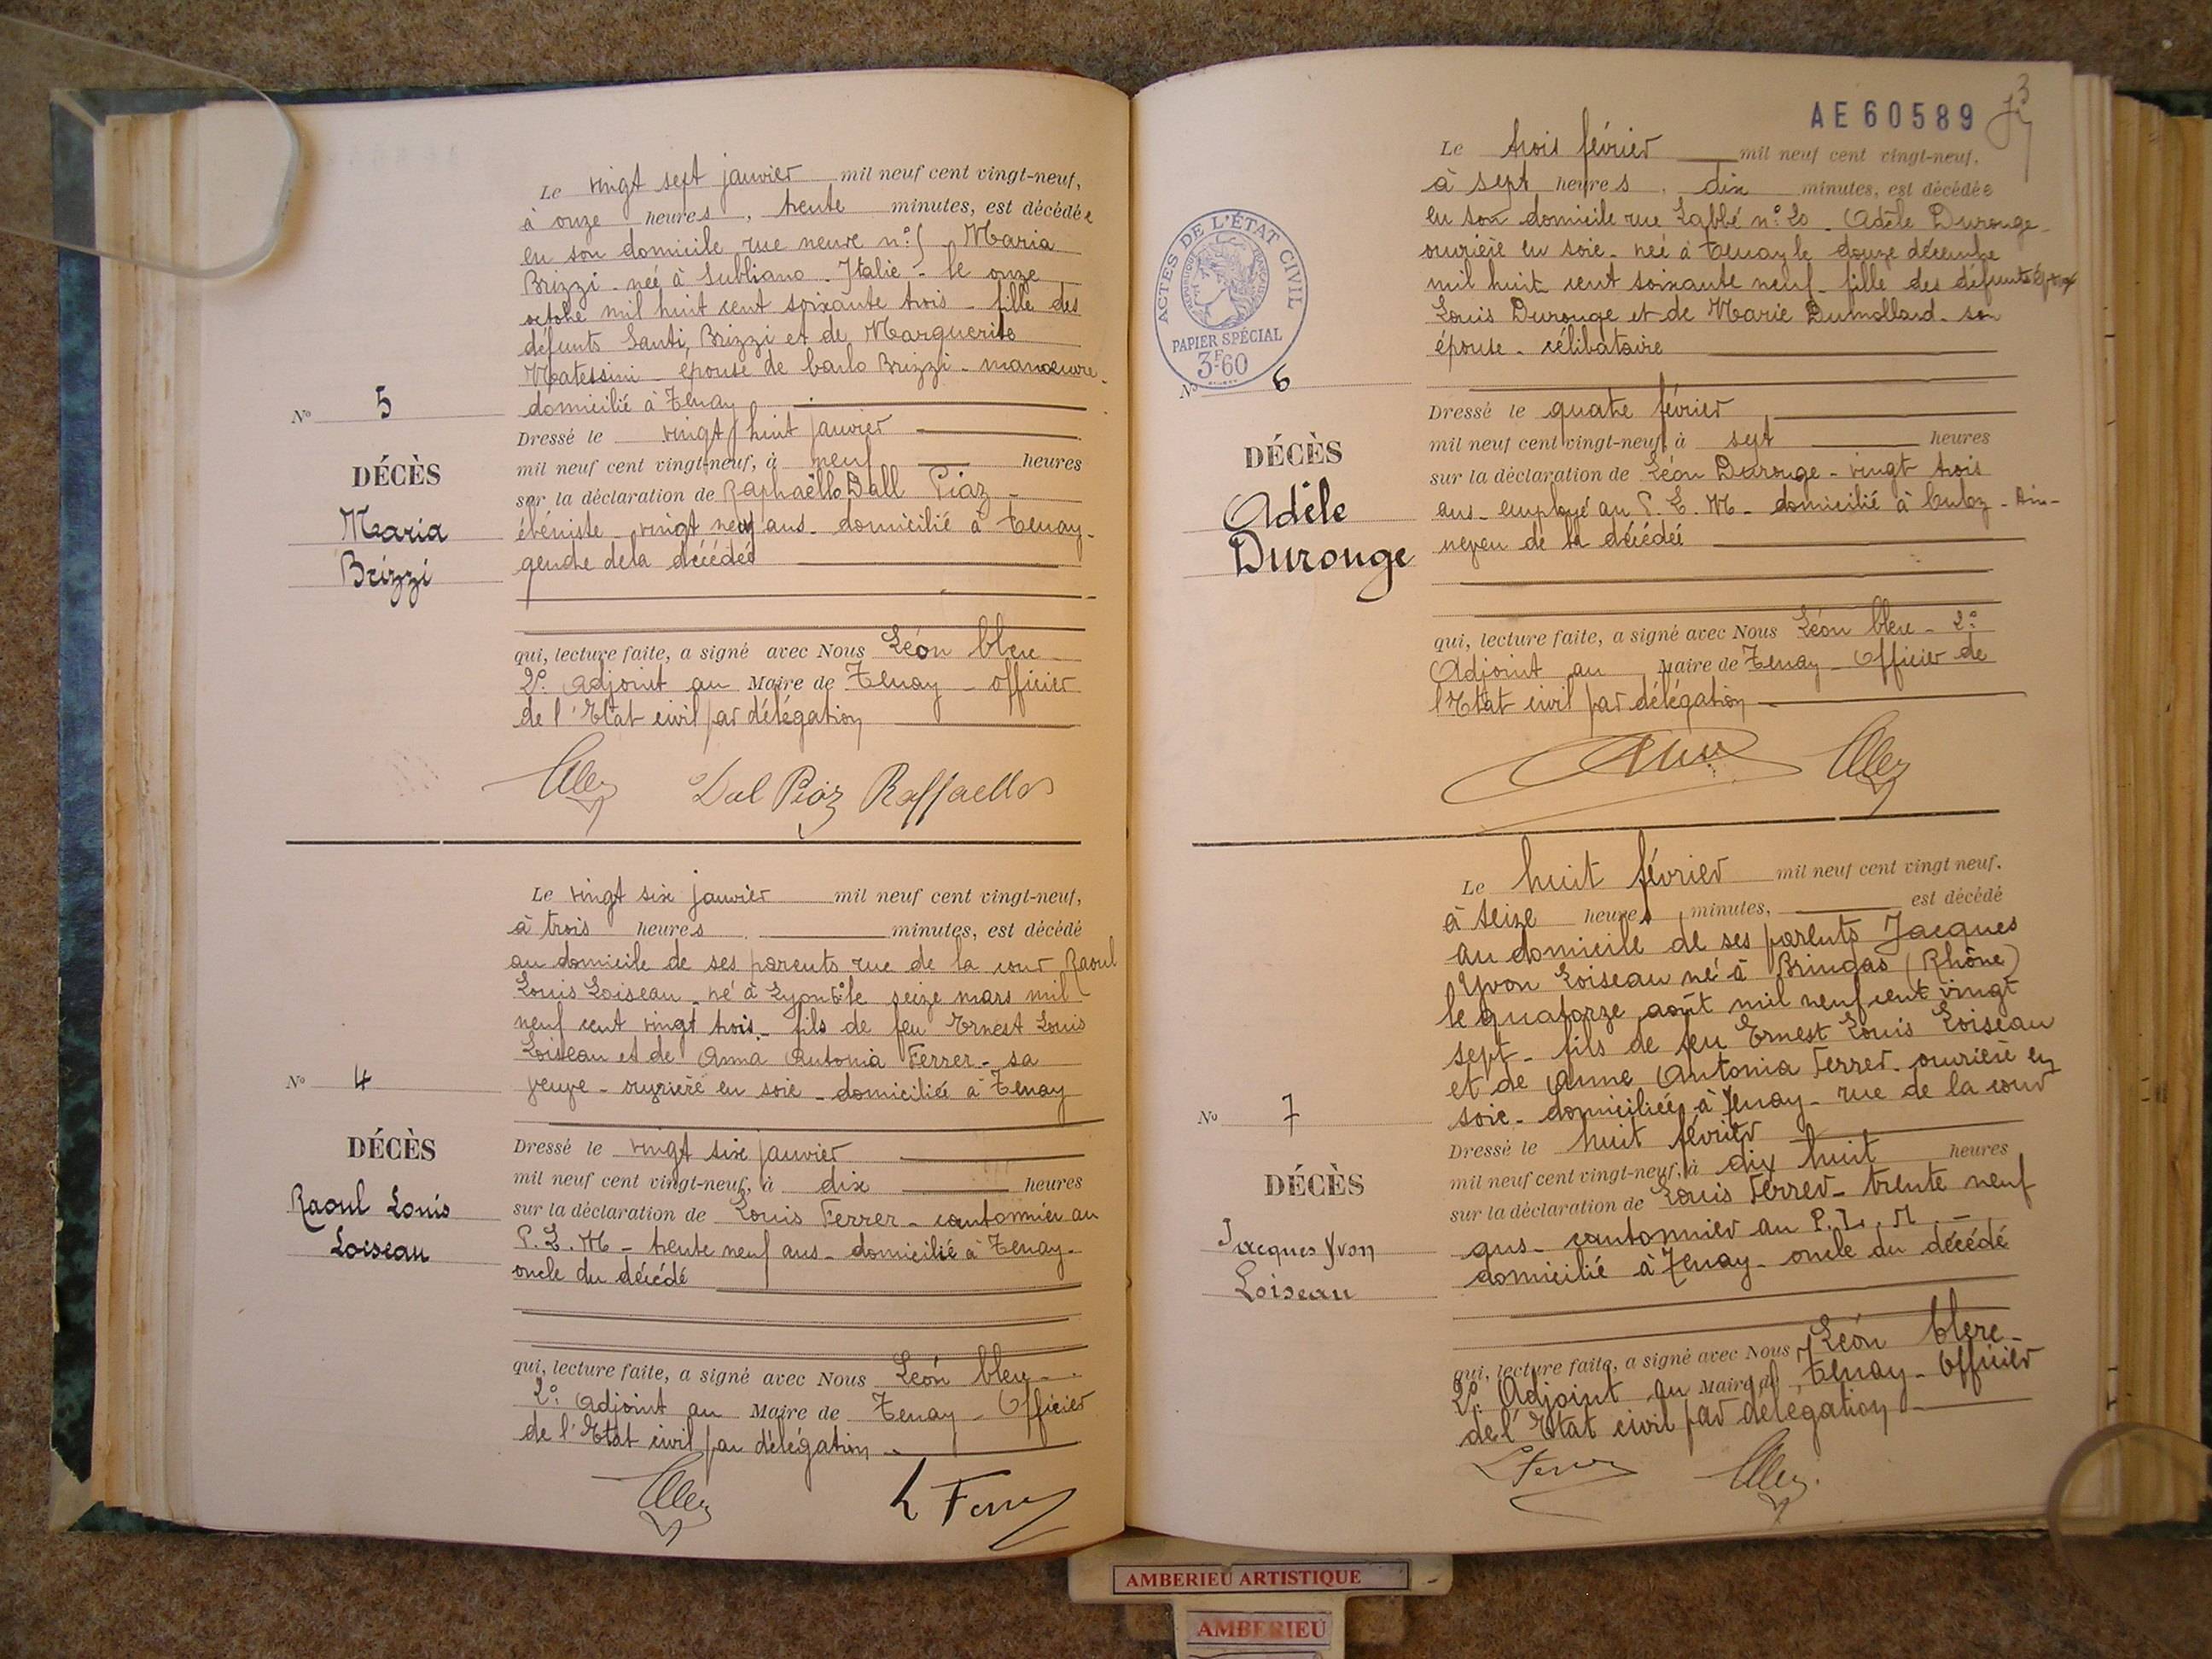 Le vingt sept janvier mil neuf cent vingt-neuf,
à onze heures, trente minutes, est décédée
en son domicile rue neuve n° Maria
Brizzi - née à Subliano - Italie - le onze
octobre mil huit cent soixante trois - fille des
défunts Santi Brizzi et de Marguerite
Matessini - épouse de Carlo Brizzi - manœuvre -
domicilié à Tenay
N° 5
DÉCÈS
Maria
Brizzi
Dressé le vingt huit janvier
mil neuf cent vingt-neuf, à neuf heures
sur la déclaration de Raphaëllo Dall Piaz -
ébéniste - vingt neuf ans - domicilié à Tenay -
gendre de la décédée
qui, lecture faite, a signé avec Nous Léon Clerc
2° Adjoint au Maire de Tenay - officier
de l'Etat civil par délégation
Dal Piaz Raffaello
Le vingt six janvier mil neuf cent vingt-neuf,
à trois heures, minutes, est décédé
au domicile de ses parents rue de la cour Raoul
Louis Loiseau - né à Lyon 6° le seize mars mil
neuf cent vingt trois - fils de feu Ernest Louis
Loiseau et de Anna Antonia Ferrer - sa
veuve - ouvrière en soie - domiciliée à Tenay
N° 4
DÉCÈS
Raoul Louis
Loiseau
Dressé le vingt six janvier
mil neuf cent vingt-neuf, à dix heures
sur la déclaration de Louis Ferrer - cantonnier au
P. L. M - trente neuf ans - domicilié à Tenay -
oncle du décédé
qui, lecture faite, a signé avec Nous Léon Clerc -
2° Adjoint au Maire de Tenay - Officier
de l'Etat civil par délégation -
L Ferrer
AE 60589
Le trois février mil neuf cent vingt-neuf,
à sept heures, dix minutes, est décédée
en son domicile rue Labbé n° 20 - Adèle Durouge -
ouvrière en soie - née à Tenay le douze décembre
mil huit cent soixante neuf - fille des défunts époux
Louis Durouge et de Marie Dumollard - son
épouse - célibataire
ACTES DE L'ÉTAT CIVIL
RÉPUBLIQUE FRANÇAISE
PAPIER SPÉCIAL
3F60
N° 6
DÉCÈS
Adèle
Durouge
Dressé le quatre février
mil neuf cent vingt-neuf, à sept heures
sur la déclaration de Léon Durouge - vingt trois
ans - employé au P. L. M - domicilié à Culoz - Ain -
neveu de la décédée
qui, lecture faite, a signé avec Nous Léon Clerc - 2°
Adjoint au Maire de Tenay - Officier de
l'Etat civil par délégation -
Le huit février mil neuf cent vingt neuf,
à seize heures, minutes, est décédé
au domicile de ses parents Jacques
Yvon Loiseau né à Brindas (Rhône)
le quatorze août mil neuf cent vingt
sept - fils de feu Ernest Louis Loiseau
et de Anne Antonia Ferrer - ouvrière en
soie - domiciliée à Tenay - rue de la cour
N° 7
DÉCÈS
Jacques Yvon
Loiseau
Dressé le huit février
mil neuf cent vingt-neuf, à dix huit heures
sur la déclaration de Louis Ferrer - trente neuf
ans - cantonnier au P. L. M. -
domicilié à Tenay - oncle du décédé
qui, lecture faite, a signé avec Nous Léon Clerc -
2° Adjoint au Maire de Tenay - Officier
de l'Etat civil par délégation
L Ferrer
AMBERIEU ARTISTIQUE
AMBERIEU